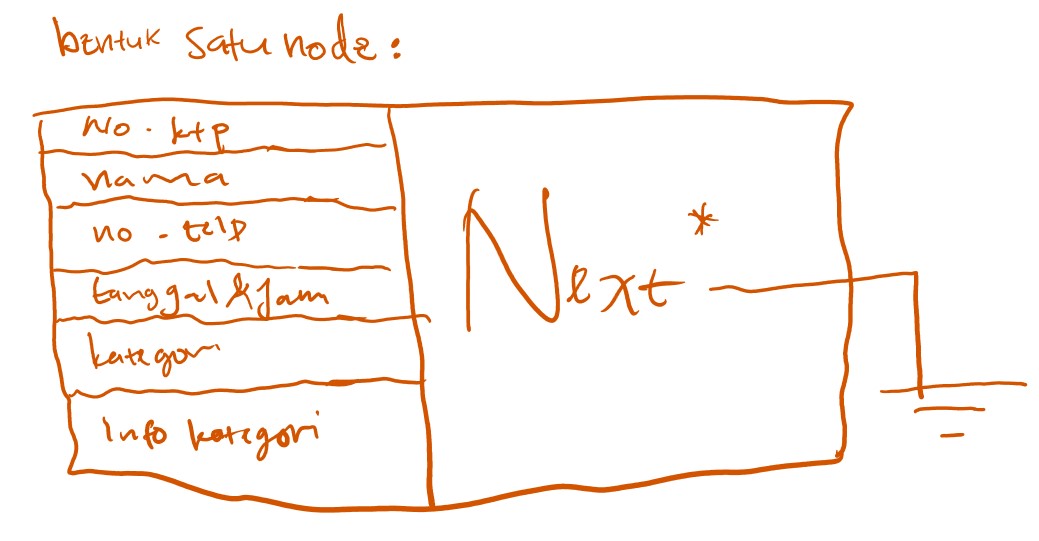 bentuk satu node:
No. ktp
nama
no. telp
tanggal & jam
kategori
Info kategori
Next *